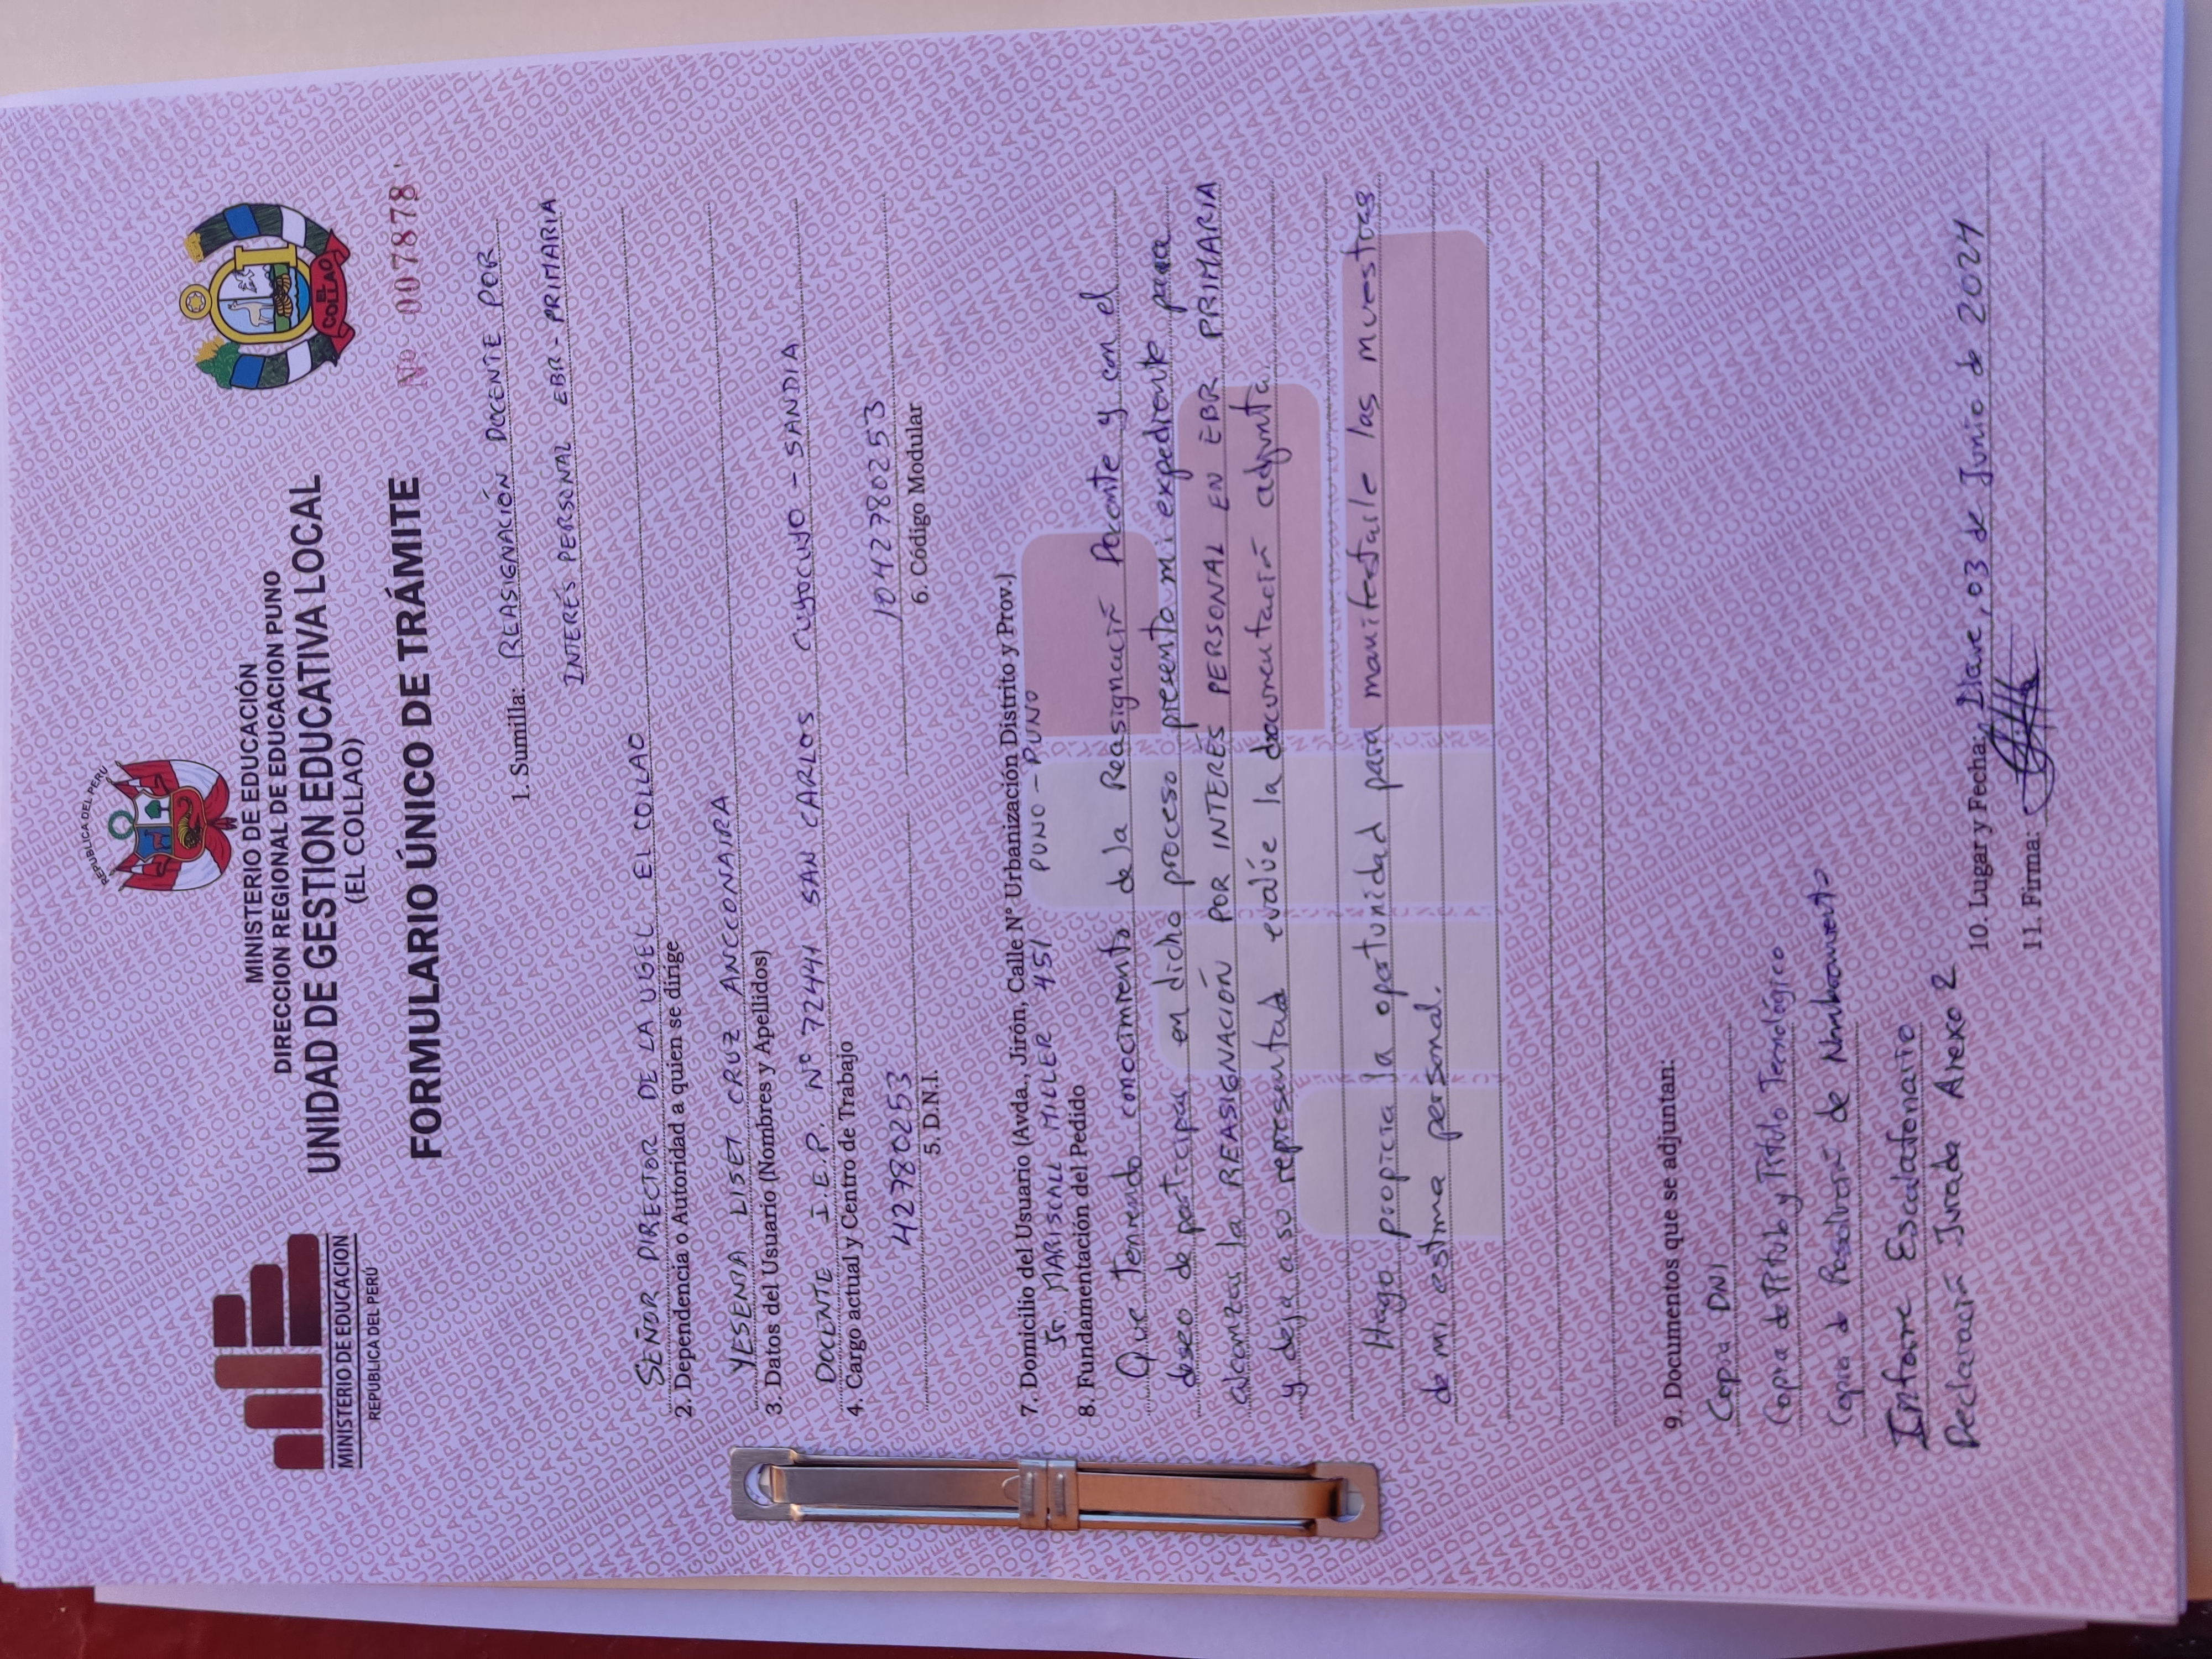 REPUBLICA DEL PERÚ
MINISTERIO DE EDUCACION
REPUBLICA DEL PERÚ
EL COLLAO
MINISTERIO DE EDUCACIÓN
DIRECCION REGIONAL DE EDUCACION PUNO
UNIDAD DE GESTION EDUCATIVA LOCAL
(EL COLLAO)
FORMULARIO ÚNICO DE TRÁMITE
Nº 007878
1. Sumilla: REASIGNACIÓN DOCENTE POR
INTERÉS PERSONAL EBR - PRIMARIA
SEÑOR DIRECTOR DE LA UGEL EL COLLAO
2. Dependencia o Autoridad a quien se dirige
YESENIA LISET CRUZ ANCCONAIRA
3. Datos del Usuario (Nombres y Apellidos)
DOCENTE I.E.P. Nº 72441 SAN CARLOS CUYOCUYO - SANDIA
4. Cargo actual y Centro de Trabajo
42780253 1042780253
5. D.N.I. 6. Código Modular
7. Domicilio del Usuario (Avda., Jirón, Calle Nº Urbanización Distrito y Prov.)
Jr. MARISCALL MILLER 451 PUNO - PUNO
8. Fundamentación del Pedido
Que Teniendo conocimiento de la Reasignación Docente y con el
deseo de participar en dicho proceso presento mi expediente para
alcanzar la REASIGNACIÓN POR INTERÉS PERSONAL EN EBR PRIMARIA
y deja a so representada evalúe la documentación adjunta.
Hago propicia la oportunidad para manifestarle las muestras
de mi estima personal.
9. Documentos que se adjuntan:
Copia DNI
Copia de Titulo y Titulo Tecnológico
Copia de Resolución de Nombramiento
Informe Escalafonario
Declaración Jurada Anexo 2
10. Lugar y Fecha: Ilave, 03 de Junio de 2024
11. Firma: